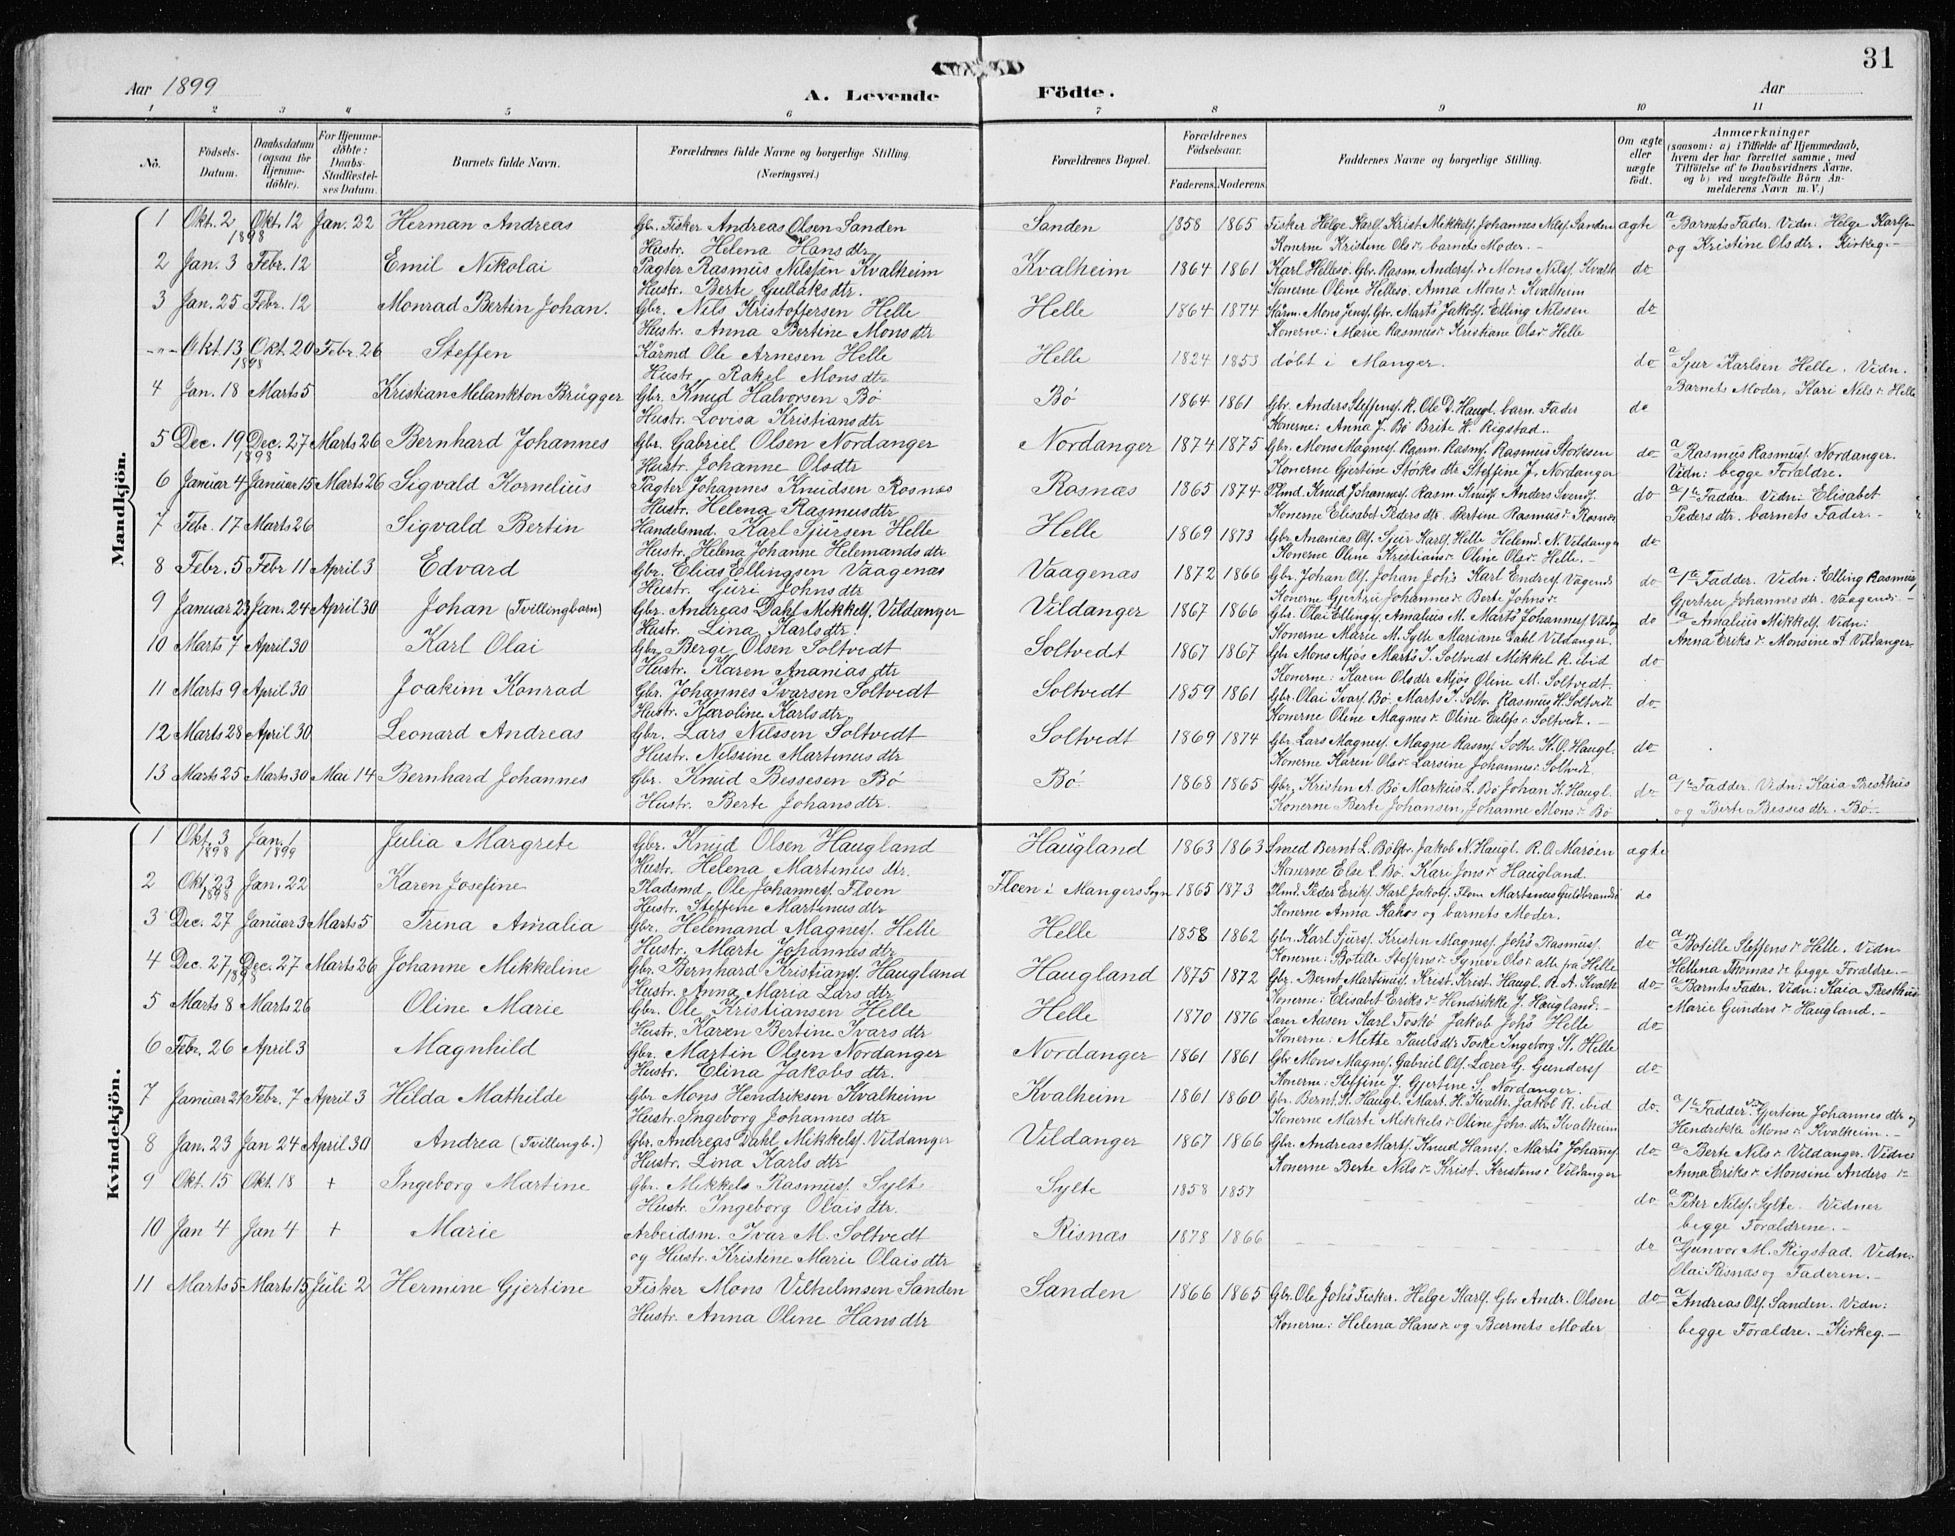 Aar 1899
A. Levende Födte.
Aar
31
1 2 3 4 5 6 7 8 9 10 11
No.
Födsels-Datum.
Daabsdatum (ogsaa for Hjemme-döbte).
For Hjemme-döbte: Daabs-Stadfæstel-ses Datum.
Barnets fulde Navn.
Forældrenes fulde Navne og borgerlige Stilling. (Næringsvei.)
Forældrenes Bopæl.
Forældrenes Födselsaar.
Faderens. Moderens.
Faddernes Navne og borgerlige Stilling.
Om ægte eller uægte födt.
Anmærkninger
(saasom: a) i Tilfælde af Hjemmedaab, hvem der har forrettet samme, med Tilföielse af to Daabsvidners Navne, og b) ved uægtefödte Börn An-melderens Navn m. V.)
Mandkjön.
1 Okt. 2 1898 Okt. 12 Jan. 22 Herman Andreas Gbr. Fisker Andreas Olsen Sanden Sanden 1858 1865 Fisker Helge Karls. Krist. Mikkels. Johannes Nils. Sanden ægte a Barnets Fader. Vidn: Helge Karls
Hustr. Helena Hansdtr Konerne Kristine Ols dr. barnets Moder. og Kristine Olsdtr. Kirkeg.-
2 Jan. 3 Febr. 12 Emil Nikolai Pagter Rasmus Nilssen Kvalheim Kvalheim 1864 1861 Karl Hellesö. Gbr. Rasm. Anders. Mons Nils. Kvalh do
Hustr. Berte Gullaksdtr. Konerne Oline Hellesö. Anna Mons Kvalheim
3 Jan. 25 Febr. 12 Monrad Bertin Johan. Gbr. Nils Kristoffersen Helle Helle 1864 1874 Mons Jens. Gbr. Marts Jakobs. Elling Nilssen do
Hustr. Anna Bertine Monsdtr Konerne: Marie Rasmus Kristiane Ols Helle
-"- Okt. 13 1898 Okt. 20 Febr. 26 Steffen Kårmd Ole Arnesen Helle Helle 1824 1853 döbt i Manger. do a Sjur Karlsen Helle. Vidn.
Hustr. Rakel Monsdtr Barnets Moder, Kari Nils Helle
4 Jan. 18 Marts 5 Kristian Melankton Brügger Gbr. Knud Halvorsen Bö Bö 1864 1861 Gbr. Anders Steffens. K. Ole D. Haugl. barn. Fader do
Hustr. Lovisa Kristiansdtr Konerne: Anna J. Bö Brite K. Rigstad.
5 Dec. 19 Dec. 27 1898 Marts 26 Bernhard Johannes Gbr. Gabriel Olsen Nordanger Nordanger 1874 1875 Gbr. Mons Magnes. Rasm. Rasms. Rasmus Storksen do a Rasmus Rasmus. Nordanger.
Hustr. Johanne Olsdtr Konerne Gjertine Storks dtr Steffine J. Nordanger Vidn: begge Forældre.
6 Januar 4 Januar 15 Marts 26 Sigvald Kornelius Pagter Johannes Knudsen Rosnæs Rasnæs 1865 1874 Plmd. Knud Johannes. Rasm. Knuds. Anders Svends. do a 1ste Fadder. Vidn: Elisabet
Hustr. Helena Rasmusdtr Konerne Elisabet Peders dtr. Bertine Rasmus Rosnæs Pedersdtr. barnets Fader.-
7 Febr. 17 Marts 26 Sigvald Bertin Handelsmd. Karl Sjursen Helle Helle 1869 1873 Gbr. Ananias Ols. Sjur Karls. Helle Helemd. N. Vildanger do
Hustr. Helena Johanne Helemandsdtr Konerne Oline Kristians Oline Ols Helle.-
8 Febr. 5 Febr. 11 April 3 Edvard Gbr. Elias Ellingsen Vaagenæs Vaagenæs 1872 1866 Gbr. Johan Ols. Johan Johs Karl Endres. Vagenæs do a 1ste Fadder. Vidn: Elling Rasmus
Hustr. Guri Johnsdtr Konerne Gjertru Johannes Berte Johns Gjertru Johannesdtr. Vaagenes
9 Januar 23 Jan. 24 April 30 Johan (Tvillingbarn) Gbr. Andreas Dahl Mikkels. Vildanger Vildanger 1867 1866 Gbr. Olai Ellings. Amalius M. Marts Johannes Vildang do a Amalius Mikkels. Vidn:
Hustr. Lina Karlsdtr. Konerne Marie M. Sylte Mariane Dahl Vildanger. Anna Eriks Monsine A Vildanger
10 Marts 7 April 30 Karl Olai Gbr. Berge Olsen Soltvedt Soltvedt 1867 1867 Gbr. Mons Mjös Marts J. Soltvedt Mikkel R. ibid do
Hustr. Karen Ananiasdtr Konerne: Karen Olsdtr Mjös Oline M. Soltvedt
11 Marts 9 April 30 Joakim Konrad Gbr. Johannes Ivarsen Soltvedt Soltvedt 1859 1861 Gbr. Olai Ivars. Bö. Marts J. Soltv. Rasmus H. Soltvedt do
Hustr. Karoline Karlsdtr Konerne Oline Magnes Oline Eilefs Soltvedt.-
12 Marts 28 April 30 Leonard Andreas Gbr. Lars Nilssen Soltvedt Soltvedt 1869 1874 Gbr. Lars Magnes. Magne Rasm. Soltv. K. O. Haugl. do
Hustr. Nilsine Martinusdtr Konerne Karen Ols Larsine Johannes Soltvedt
13 Marts 25 Marts 30 Mai 14 Bernhard Johannes Gbr. Knud Bessesen Bö Bö 1868 1865 Gbr. Kristen A. Bö Markus L. Bö Johan K. Haugl. do a 1ste Fadder. Vidn: Kaia Presthus
Hustr. Berte Johansdtr. Konerne Berte Johansen, Johanne Mons Bö og Berte Besses dtr. Bö.-
Kvindekjön.
1 Okt. 3 1898 Jan. 1 1899 Julia Margrete Gbr. Knud Olsen Haugland Haugland 1863 1863 Smed Bernt L. Bö Gbr. Jakob N. Haugl. R. O. Maröen ægte
Hustr. Helena Martinus dtr. Konerne Else L. Bö. Kari Jons Haugland
2 Okt. 23 1898 Jan. 22 Karen Josefine Pladsmd Ole Johannes. Floen Floen i Mangers Sogn 1865 1873 Plmd. Peder Eriks. Karl Jakobs. Floen Martinus Guldbrands do
Hustr. Steffine Martinusdtr Konerne Anna Kakos og barnets Moder.
3 Dec. 27 Januar 3 Marts 5 Trina Amalia Gbr. Helemand Magnes. Helle Helle 1858 1862 Gbr. Karl Sjurs. Kristen Magnes. Johs Rasmus. do a Botille Steffens Helle. Vidn
Hustr. Marte Johannesdtr Konerne: Botille Steffens Syneve Ols alle fra Helle Hellena Thomas begge Forældre.-
4 Dec. 27 1898 Dec. 27 Marts 26 Johanne Mikkeline Gbr. Bernhard Kristians. Haugland Haugland 1875 1872 Gbr. Bernt Martinus. Krist. Krist. Haugl. R. A. Kvalh do a Barnts Fader. Vidn: Kaia Presthus
Hustr. Anna Maria Larsdtr Konerne: Elisabet Eriks Hendrikke J. Haugland.- Marie Gunders Haugland.-
5 Marts 8 Marts 26 Oline Marie Gbr. Ole Kristiansen Helle Helle 1870 1876 Lærer Aasen Karl Toskö Jakob Johs Helle do
Hustr. Karen Bertine Ivarsdtr Konerne: Mette Paulsdtr Toske Ingeborg St. Helle
6 Febr. 26 April 3 Magnhild Gbr. Martin Olsen Nordanger Nordanger 1861 1861 Gbr. Mons Magnes. Gabriel Ols. Lærer G. Gunders. do
Hustr. Elina Jakobsdtr. Konerne: Steffine J. Gjertine S. Nordanger
7 Januar 21 Febr. 7 April 3 Hilda Mathilde Gbr. Mons Hendriksen Kvalheim Kvalheim 1861 1860 Gbr. Bernt K. Haugl. Mart. H. Kvalh. Jakob R. ibid do. a 1ste Fadder Gjertine Johannes dtr og
Hustr. Ingeborg Johannesdtr Konerne Marte Mikkels Oline Johs. dtr. Kvalheim Hendrikka Mons Kvalheim.-
8 Jan. 23 Jan 24 April 30 Andrea (Tvillingb.) Gbr. Andreas Dahl Mikkels. Vildanger Vildanger 1867 1866 Gbr. Andreas Marts. Knud Hans. Marts Johannes. do a Berte Nils Vildanger. Vidne
Hustr. Lina Karlsdtr Konerne Berte Nils Krist. Kristens Vildanger Anna Eriks Monsine Anders
9 Okt. 15 Okt. 18 + Ingeborg Martine Gbr. Mikkels Rasmus. Sylte Sylte 1858 1857 do a Peter Nils. Sylte. Vidner
Hustr. Ingeborg Olaisdtr. begge Forældrene.-
10 Jan 4 Jan 4 + Marie Arbeidsm. Ivar M. Soltvedt Risnæs 1878 1866 do a Gunvor M. Rigstad. Vidn:
og Hustr. Kristine Marie Olaisdtr Olai Risnæs og Faderen.-
11 Marts 5 Marts 15 Juli 2 Hermine Gjertine Fisker Mons Vilhelmsen Sanden Sanden 1866 1865 Gbr. Ole Johs Fisker. Helge Karls. Gbr Andr. Olsen do a Andreas Ols. Sanden. Vidn:
Hustr. Anna Oline Hansdtr Konerne: Helena Hans og Barnets Moder begge Forældre.-Kirkeg.-